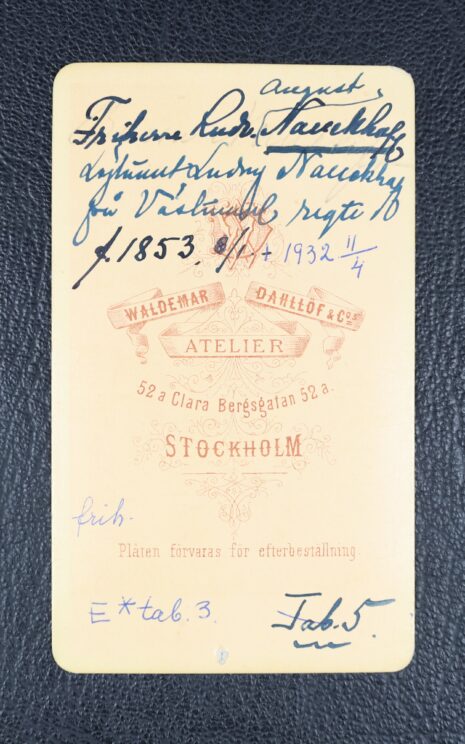 August
Friherre Ludv. Nauckhoff
Löjtnant Ludvig Nauckhoff
från Västmanl regte
f. 1853. 8/1 + 1932 11/4
WALDEMAR DAHLLÖF & Cos
ATELIER
52a Clara Bergsgatan 52a.
STOCKHOLM
frih.
Plåten förvaras för efterbeställning
E * tab. 3.
Tab. 5.